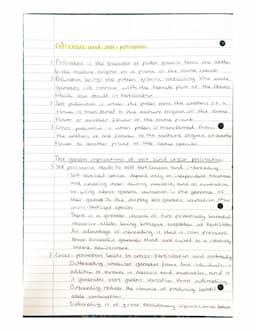 (a) Cross and self-pollination
) Pollination is the transfer of pollen grains from the anther
to the mature stigma of a plant of the same species
) Pollination brings the pollen grains, containing the male
gametes, into contact with the female part of the flower
which can result in fertilisation
) Self-pollination is when the pollen from the anthers of a
flower is transferred to the mature stigma of the same
flower or another flower of the same plant
) Cross-pollination is when pollen is transferred from
the anthers of one flower to the mature stigma of another
flower on another plant of the same species
The genetic implications of self and cross pollination
) Self pollination leads to self-fertilisation and inbreeding
Self-fertilised species depend only on independent assortment
and crossing over during meiosis, and on mutation
to bring about genetic variation in the genomes of
their gametes
less genetic variation than
cross-fertilised species
There is a greater chance of two potentially harmful
recessive alleles being brought together at fertilisation
An advantage of inbreeding is that it can preserve
those successful genomes that are suited to a relatively
stable environment
) Cross-pollination leads to cross-fertilisation and outbreeding
Outbreeding combines gametes from two individuals, in
addition to events in meiosis and mutations, and so
it generates more genetic variation than inbreeding
Outbreeding reduces the chance of producing harmful
allele combinations
Outbreeding is of great evolutionary significance because